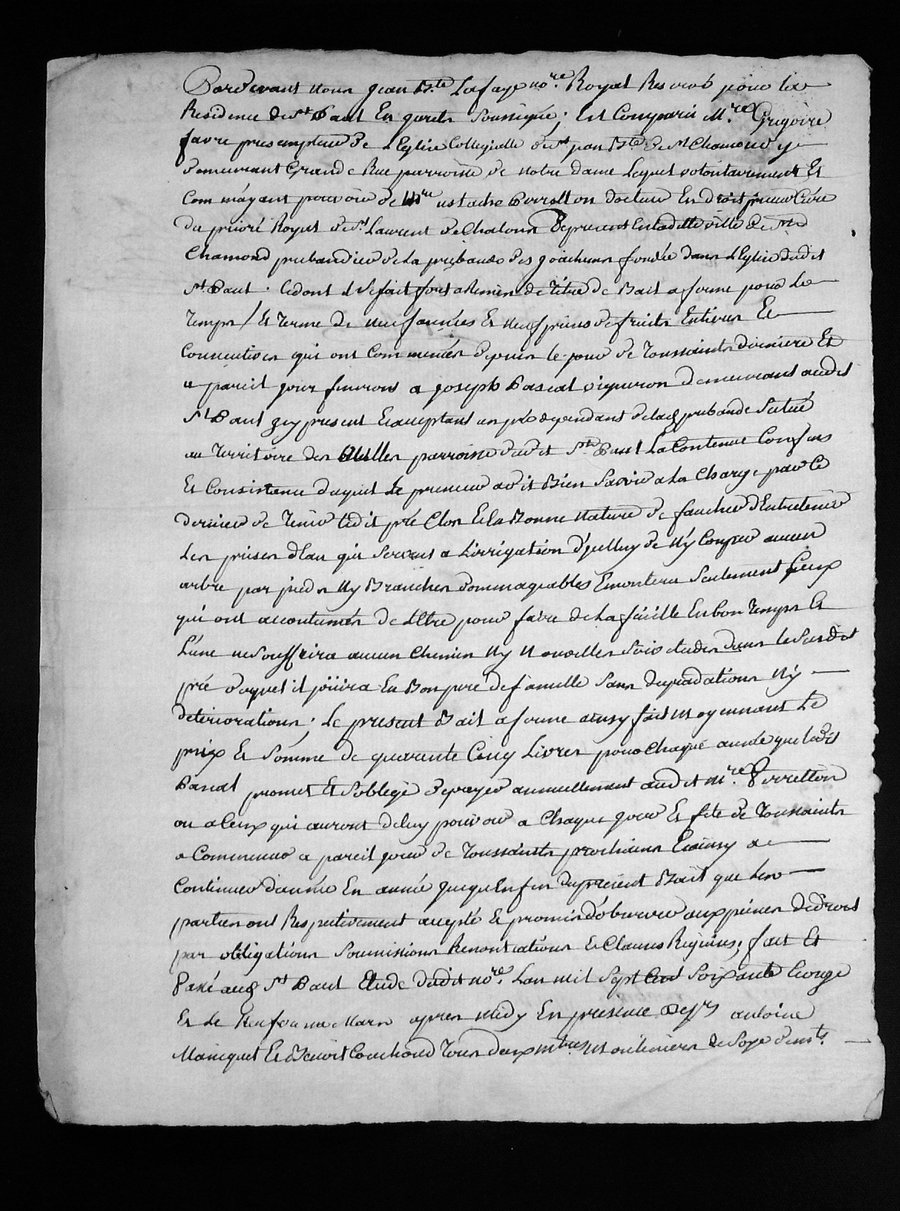 Pardevant nous jean Bte Lafaye nore Royal Reservé pour la
Residence de st Paul En Jarets Soussigné; Est Comparu Mre Grigoire
favre presempteur de L'Eglise Collegialle de st jean Bte de St Chamond y
demeurant Grande Rue parroisse de notre dame Lequel volontairement Et
Comme ayant pouvoir de Mre ustache Perretton docteur En droit prieur Curé
du prieré Royal de st Laurent de Chalons depresent En Ladite ville de St
Chamond prebandier de La prebande des joachims fondée dans L'Eglise dudit
St Paul . Cedant il Se fait fort a Remis de titre de Bail a ferme pour Le
Temps / Et Terme de neuf années Et neuf prises de fruits Entieres Et
Consecutives qui ont Commencées depuis Le jour de Toussaints derniere Et
a pareil jour finiront a joseph Pascal vigneron demeurant audit
St Paul icy present Et acceptant un pré dependant de lad prebande Scitué
au Territoire des parroisse dudit St Paul La Contenue Confins
Et Consistance duquel Le preneur a dit Bien Savoir a La Charge par Ce
dernier de Tenir Ledit pré Clos Et La Bonne Nature de faucher d'Entretenir
Les prises d'Eau qui Servent a L'irrigation d'yCelluy de N'y Couper aucun
arbre par pied Ny Branches dommageables Emontera Seulement Ceux
qui ont accoutumés de L'Etre pour faire de La feüille En bon Temps Et
Lune ne Souffrira aucun Chemin Ny Nouvelles Servitudes dans Le Susdit
pré duquel il joüira En Bon pere de famille Sans degradations Ny
deteriorations; Le present Bail a ferme ainsy fait Moyennant Le
prix Et Somme de quarente Cinq Livres pour Chaque année que Ledit
Pascal promet Et S'oblege de payer annuellement audit Mre Perretton
ou a Ceux qui auront de Luy pouvoir a Chaque jour Et fete de Toussaints
a Commencer a pareil jour de Toussaints prochains Et ainsy a
Continuer d'année En année jusqu'En fin du present Bail que Les
parties ont Respectivement accepté Et promis d'observer aux peines de droit
par obligations Soumissions Renontiations Et Clauses Requises; fait Et
Passé aud St Paul Etude dudit nore. L'an mil Sept Cent Soixante Et onze
Et Le Neuf du mois de Mars apres Midy En presence de Srs antoine
Maniquet Et Benoit Couchoud Tous deux Mtres Mouliniers de Soye demts